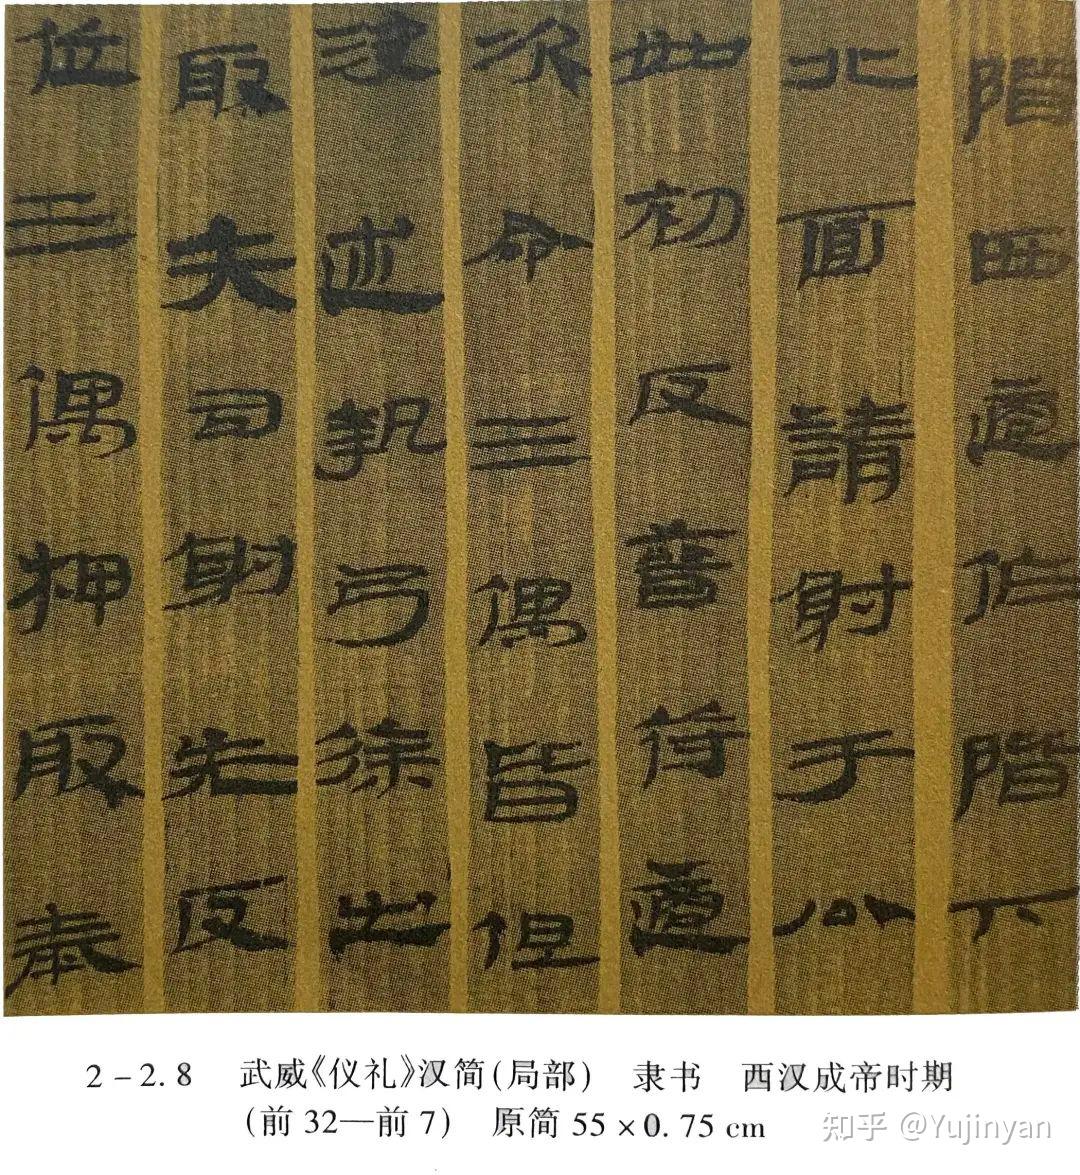 階西適作階下
北面請射于公
如初反晉符適
次命三偶皆但
決述執弓徐出
取矢司射先反
位三偶押取
2-2.8 武威《仪礼》汉简(局部) 隶书 西汉成帝时期
(前32—前7) 原简55×0.75 cm
知乎 @Yujinyan